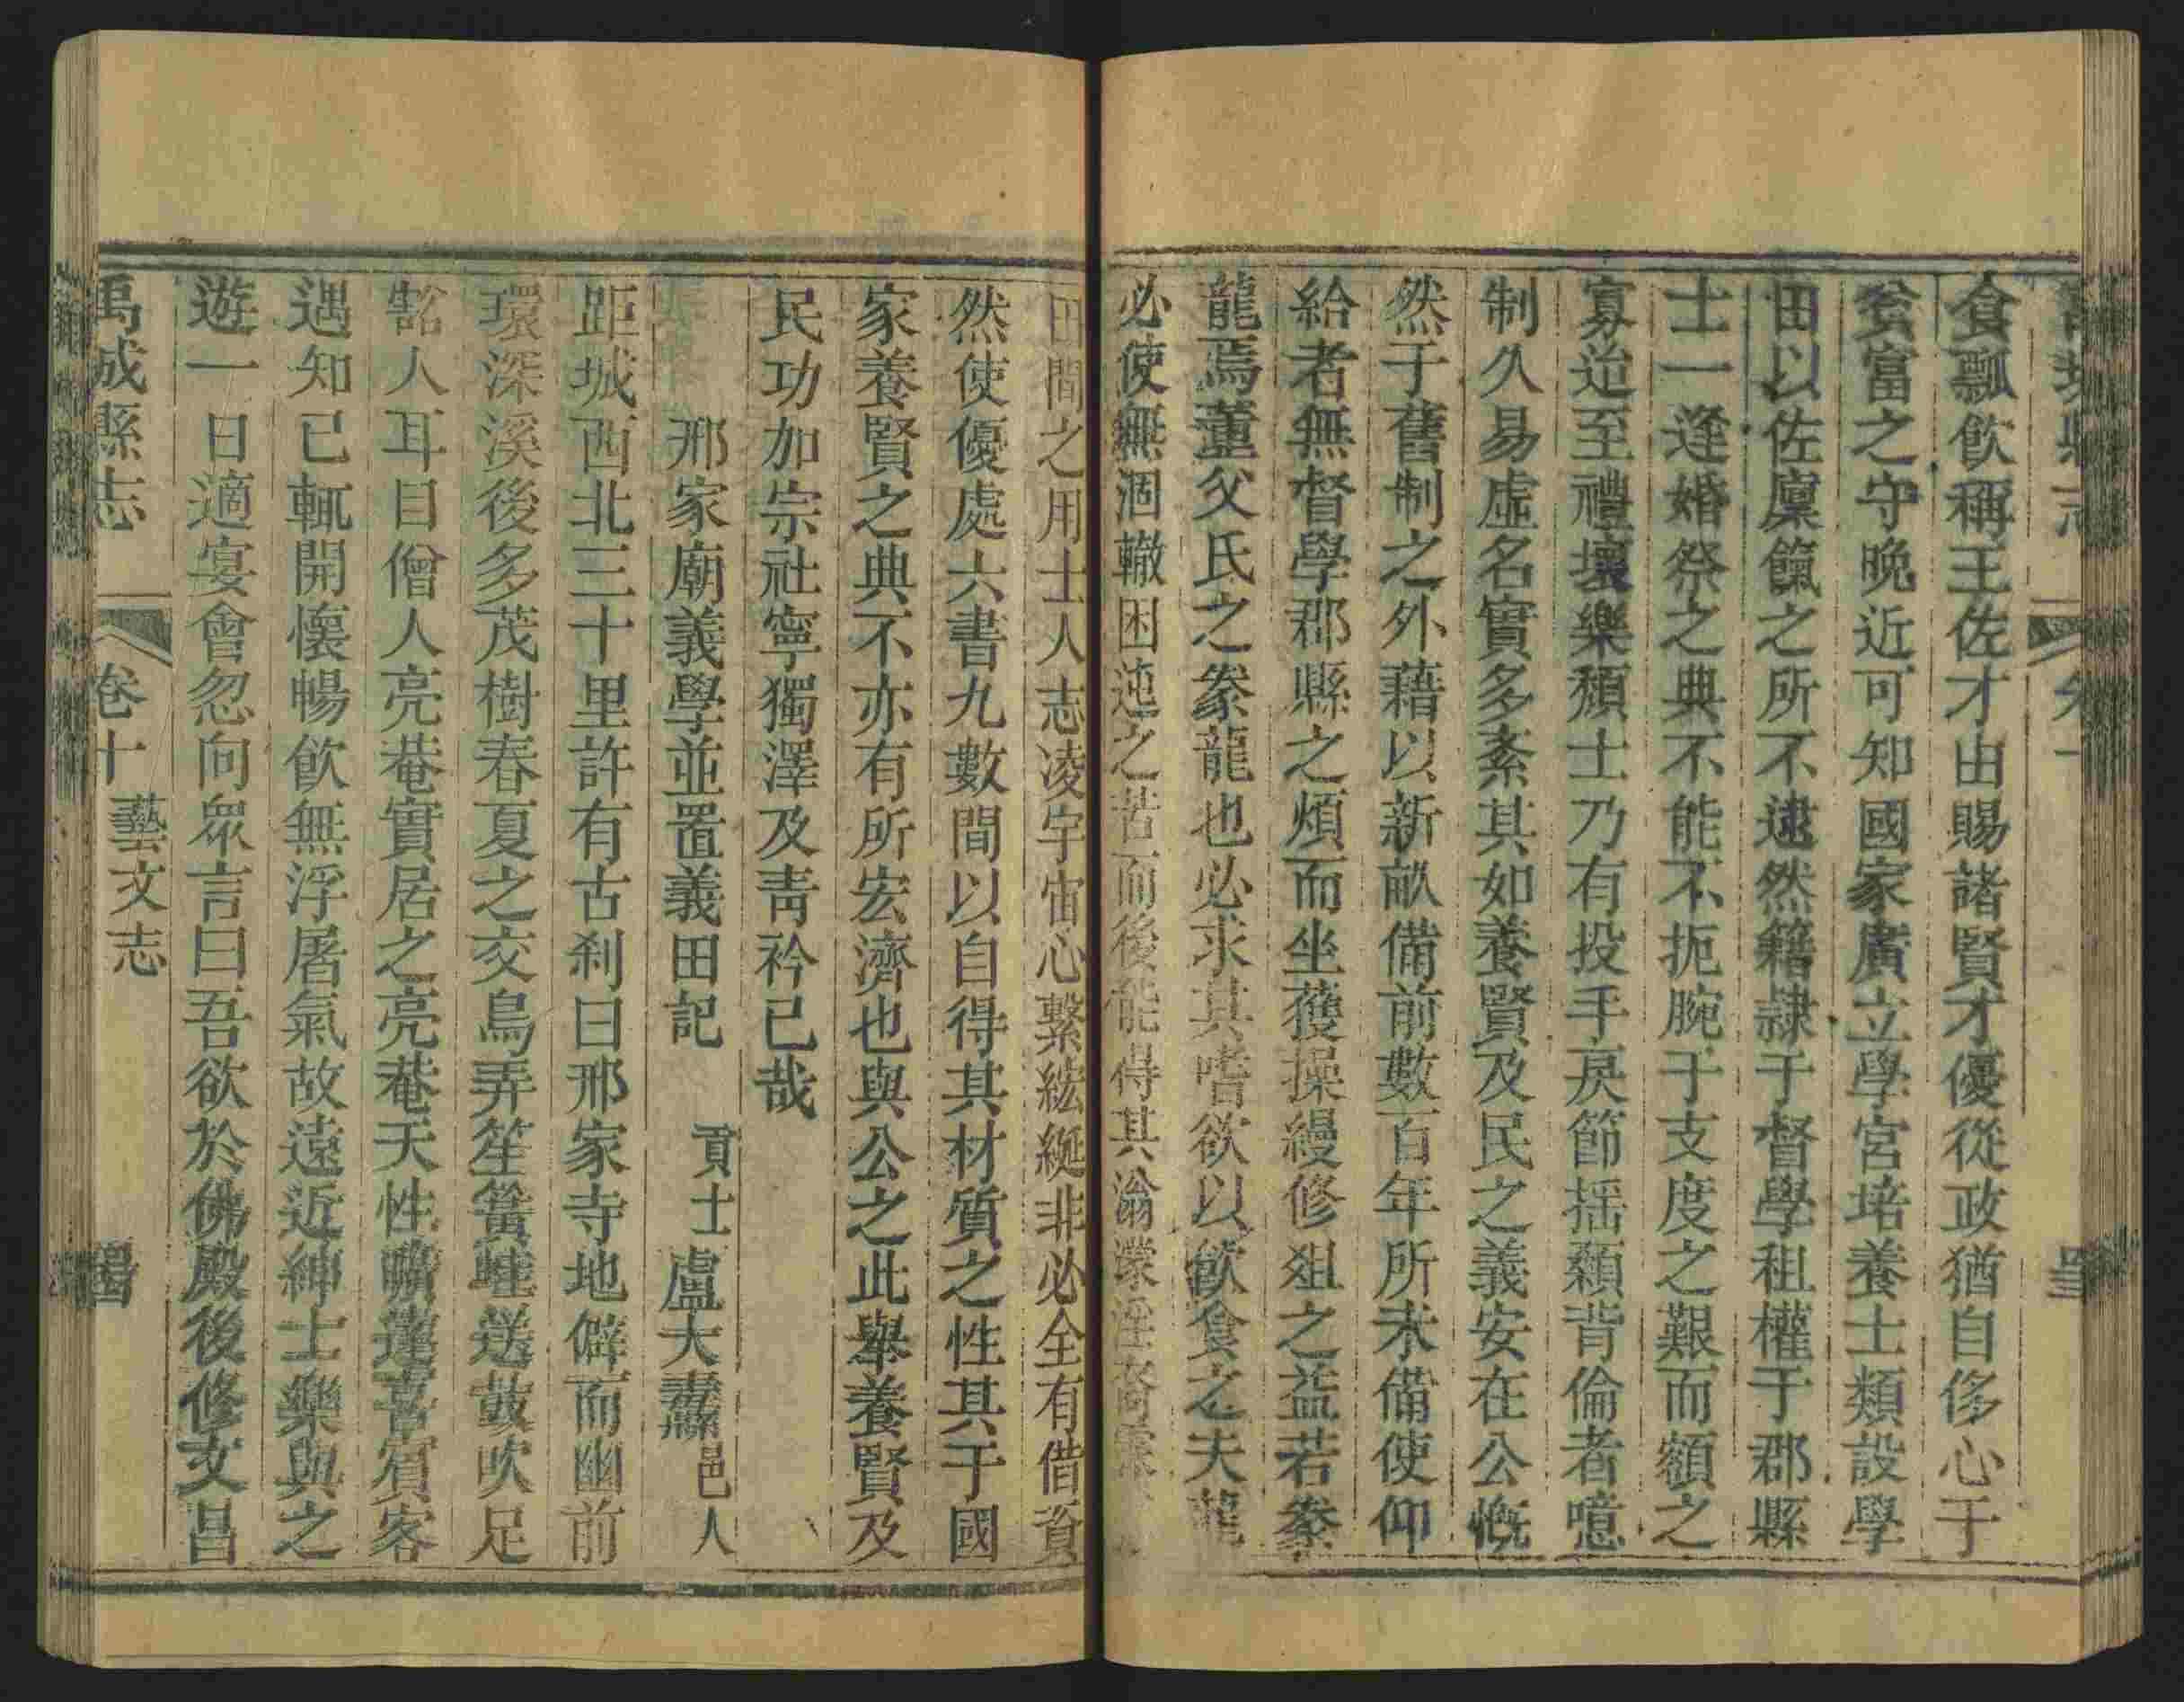 食瓢飲稱王佐才由賜諸賢才優從政猶自侈心于
貧富之守晚近可知國家廣立學宮培養士類設學
田以佐廩餼之所不逮然籍隷于督學租權于郡縣
士一逢婚祭之典不能不扼腕于支度之艱而額之
寡迨至禮壞樂頹士乃有投手戾節揺顙背倫者噫
制久易虛名實多紊其如養賢及民之義安在公慨
然于舊制之外藉以新畝備前數百年所未備使仰
給者無督學郡縣之煩而坐獲操縵修俎之益若豢
龍焉董父氏之豢龍也必求其嗜欲以飲食之夫龍
必使無涸轍困迍之之苦而後能得其滃濛
田間之用士人志凌宇宙心繫綋綖非必全有借資
然使優處六書九數間以自得其材質之性其于國
家養賢之典不亦有所宏濟也與公之此舉養賢及
民功加宗社寧獨澤及靑衿已哉
邢家廟義學並置義田記 貢士盧大 邑人
距城西北三十里許有古刹曰邢家寺地僻而幽前
環深溪後多茂樹春夏之交鳥弄笙簧蛙送鼓吹足
豁人耳目僧人亮菴實居之亮菴天性曠達喜賓客
遇知已輒開懷暢飲無浮屠氣故遠近紳士樂與之
遊一日適宴會忽向眾言曰吾欲於佛殿後修文昌
禹城縣志 卷十 藝文志